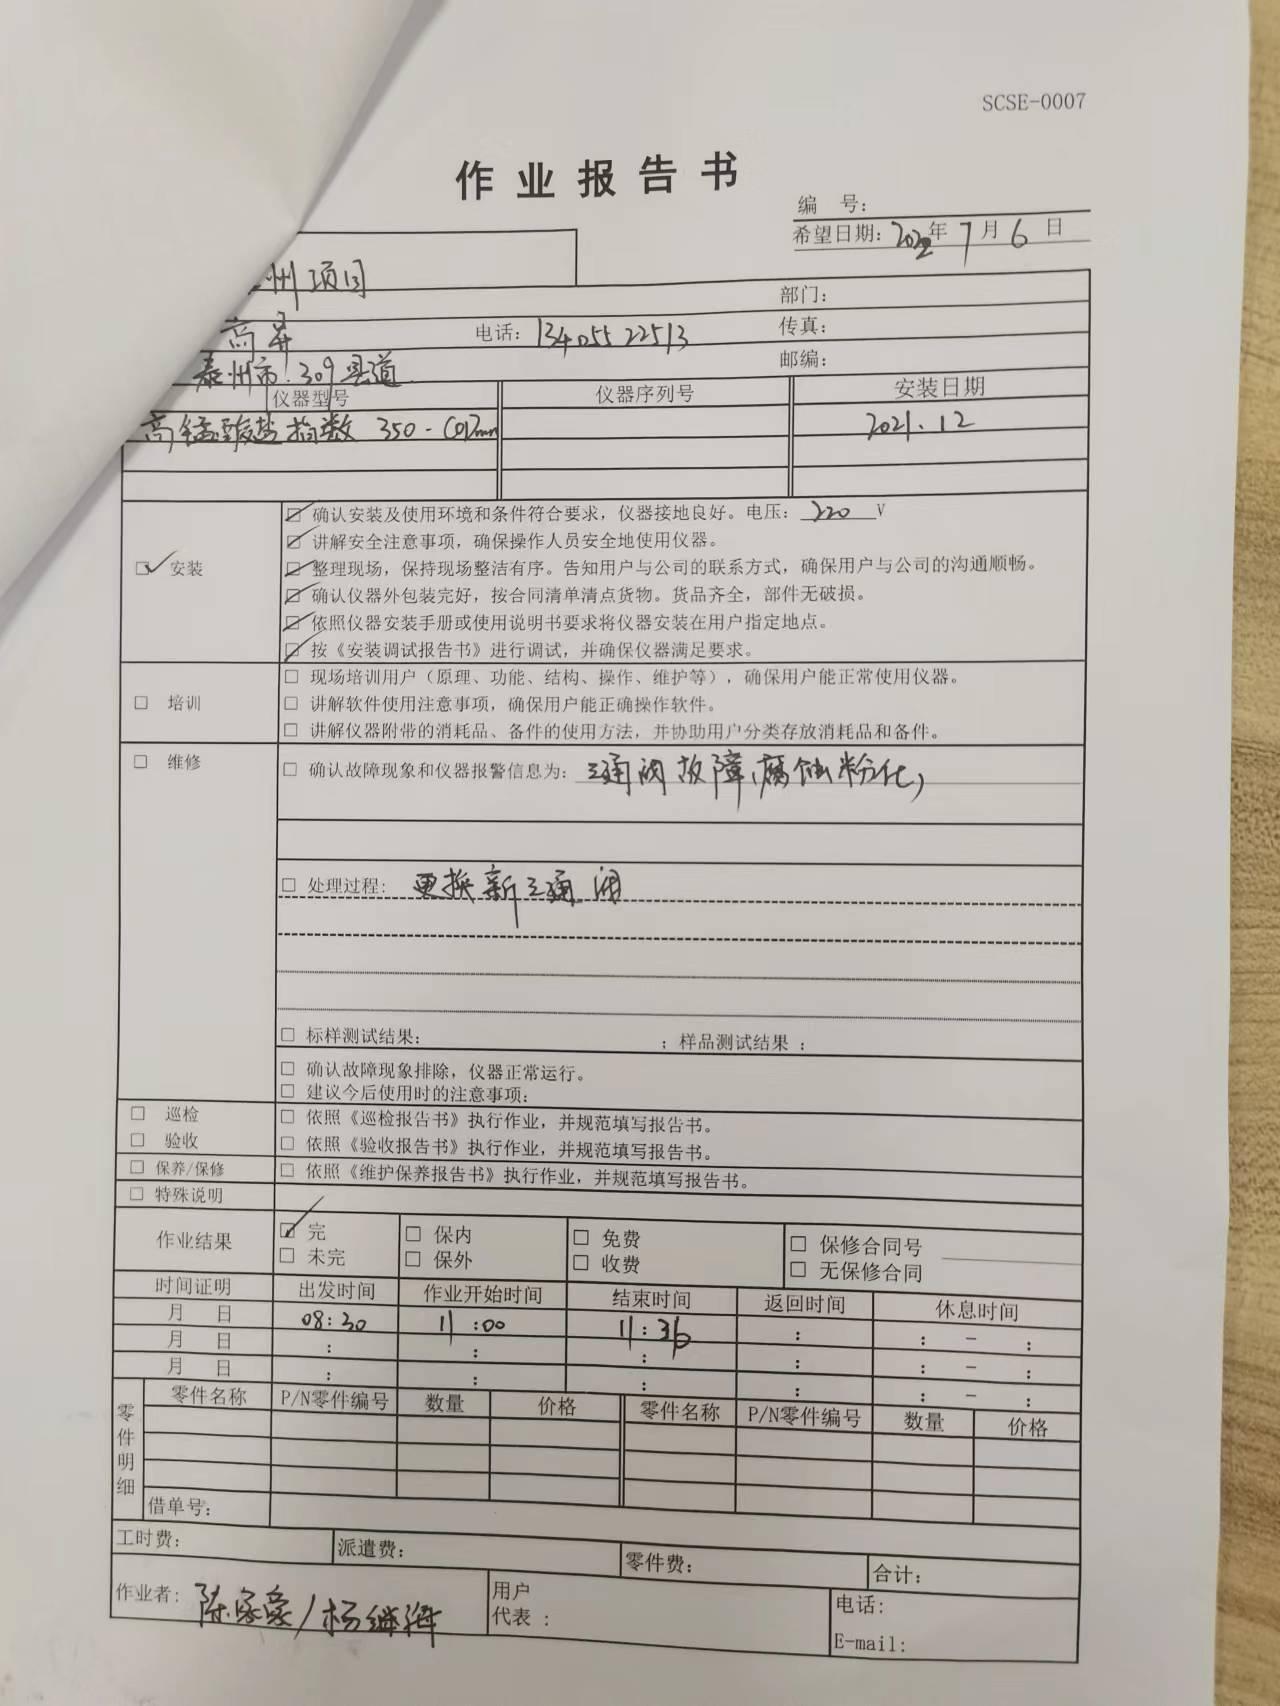 SCSE-0007
作业报告书
编 号：
希望日期：2022年7月6日
州项目
部门：
高昇 电话：13405522513 传真：
泰州市.309县道. 邮编：
仪器型号 仪器序列号 安装日期
高锰酸盐指数 350-CODmn 2021.12
☑ 安装
☑ 确认安装及使用环境和条件符合要求，仪器接地良好。电压：220V
☑ 讲解安全注意事项，确保操作人员安全地使用仪器。
☑ 整理现场，保持现场整洁有序。告知用户与公司的联系方式，确保用户与公司的沟通顺畅。
☑ 确认仪器外包装完好，按合同清单清点货物。货品齐全，部件无破损。
☑ 依照仪器安装手册或使用说明书要求将仪器安装在用户指定地点。
☑ 按《安装调试报告书》进行调试，并确保仪器满足要求。
□ 培训
□ 现场培训用户（原理、功能、结构、操作、维护等），确保用户能正常使用仪器。
□ 讲解软件使用注意事项，确保用户能正确操作软件。
□ 讲解仪器附带的消耗品、备件的使用方法，并协助用户分类存放消耗品和备件。
□ 维修
□ 确认故障现象和仪器报警信息为：三通阀故障，腐蚀粉化，
□ 处理过程：更换新三通阀
□ 标样测试结果： ；样品测试结果：
□ 确认故障现象排除，仪器正常运行。
□ 建议今后使用时的注意事项：
□ 巡检 □ 依照《巡检报告书》执行作业，并规范填写报告书。
□ 验收 □ 依照《验收报告书》执行作业，并规范填写报告书。
□ 保养/保修 □ 依照《维护保养报告书》执行作业，并规范填写报告书。
□ 特殊说明
作业结果 ☑ 完 □ 保内 □ 免费 □ 保修合同号
□ 未完 □ 保外 □ 收费 □ 无保修合同
时间证明 出发时间 作业开始时间 结束时间 返回时间 休息时间
月 日 08:30 11:00 11:36 : : - :
月 日 : : : : : - :
月 日 : : : : : - :
零件明细
零件名称 P/N零件编号 数量 价格 零件名称 P/N零件编号 数量 价格
借单号：
工时费： 派遣费： 零件费： 合计：
作业者：陈家豪/杨继 用户代表： 电话：
E-mail: